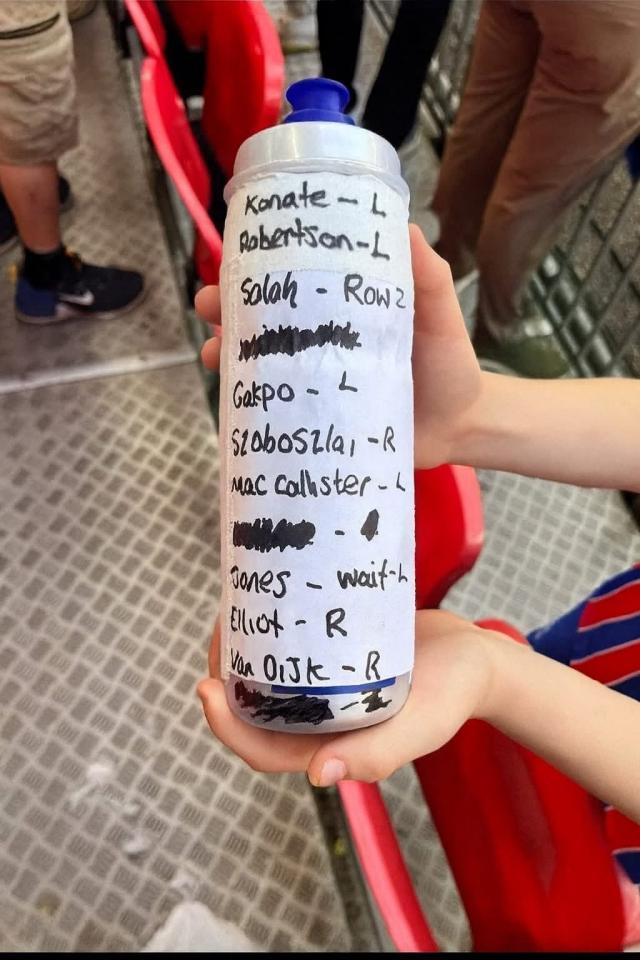 Konate - L
Robertson - L
Salah - Row 2
Gakpo - L
Szoboszlai - R
Mac Callister - L
Jones - wait - L
Elliot - R
Van DiJK - R